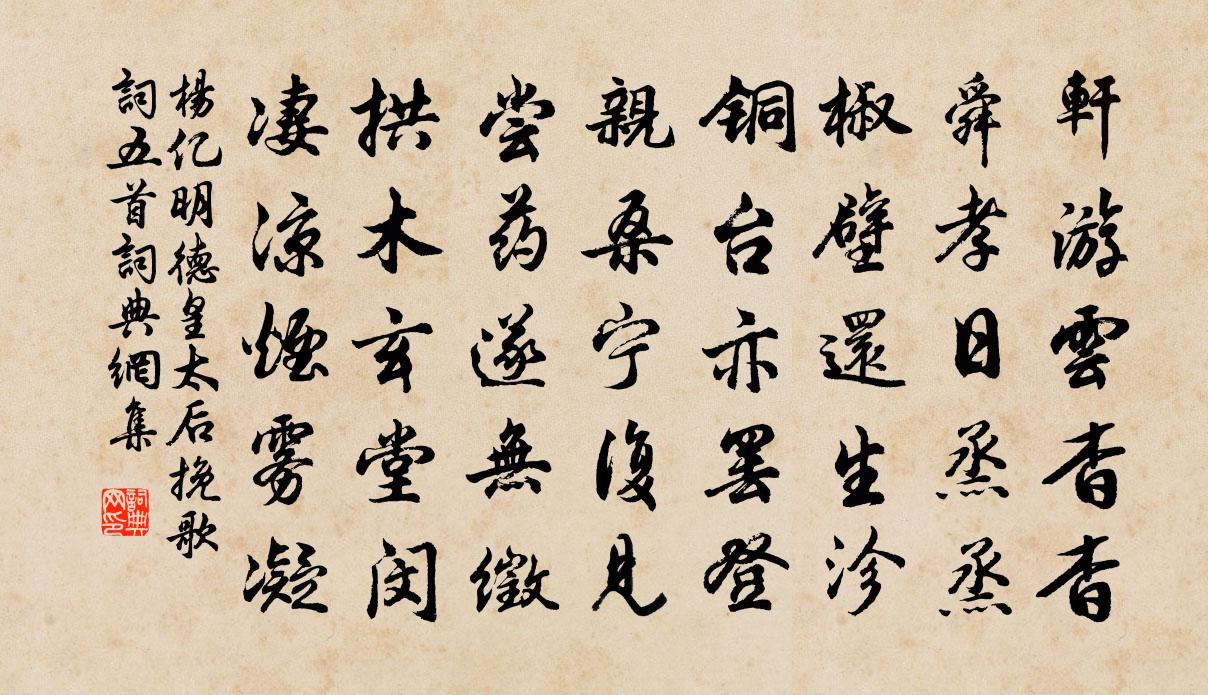 軒游雲杳杳
舜孝日烝烝
椒壁還生沴
銅台亦罢登
親桑宁復見
尝药遂無徵
拱木玄堂闵
凄涼煙雾凝
楊亿明德皇太后挽歌
詞五首詞典網集
詞典网印